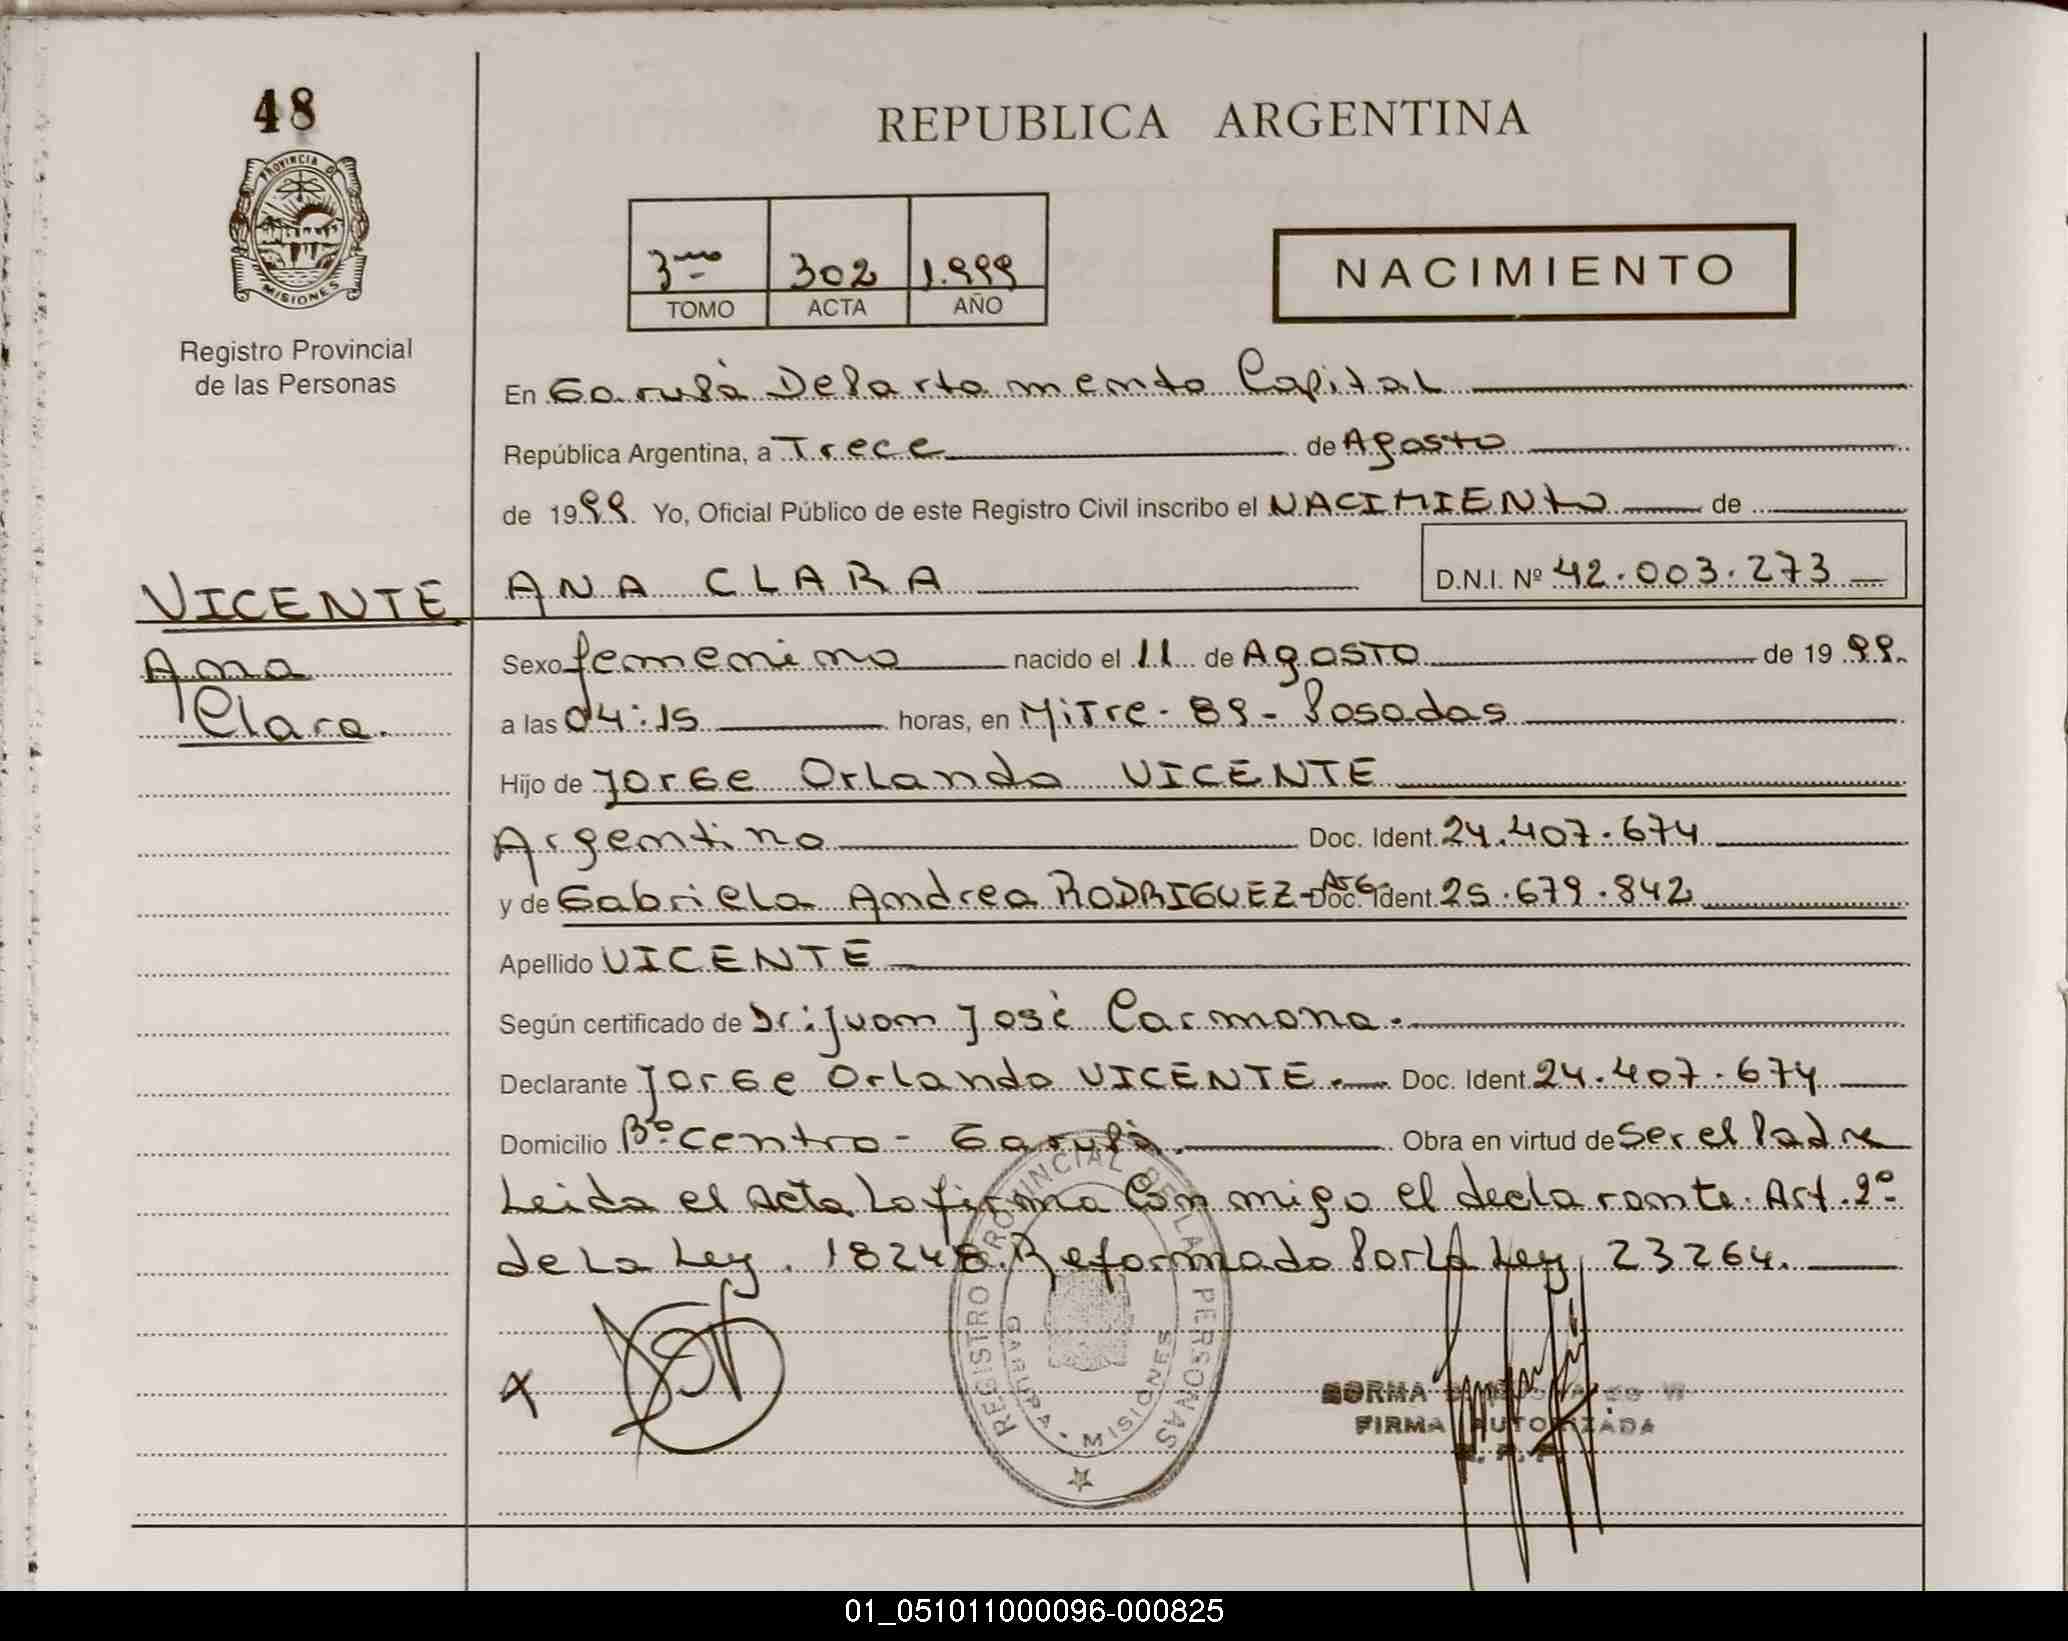 48
REPUBLICA ARGENTINA
PROVINCIA DE
MISIONES
Registro Provincial
de las Personas
3mo 302 1.999
TOMO ACTA AÑO
NACIMIENTO
En Garupà Departamento Capital
República Argentina, a Trece de Agosto
de 1999. Yo, Oficial Público de este Registro Civil inscribo el NACIMIENTO de
VICENTE ANA CLARA D.N.I. Nº 42.003.273
Ana
Clara.
Sexo femenino nacido el 11 de AgOSTO de 19 99.
a las 04:15 horas, en MiTre - 89 - Posadas
Hijo de Jorge Orlando VICENTE
Argentino Doc. Ident. 24.407.674
y de Gabriela Andrea RODRIGUEZ - Arg Doc. Ident. 25.679.842
Apellido VICENTE
Según certificado de Dr: Juan José Carmona.
Declarante Jorge Orlando VICENTE. Doc. Ident. 24.407.674
Domicilio Bº Centro - Garupà. Obra en virtud de Ser el Padre
Leida el Acta La firma Conmigo el declarante. Art. 2º
de La Ley. 18248. Reformado Por La Ley 23264.
REGISTRO PROVINCIAL DE LAS PERSONAS
GARUPA - MISIONES
X
NORMA
FIRMA AUTORIZADA
R. P. P.
01_051011000096-000825